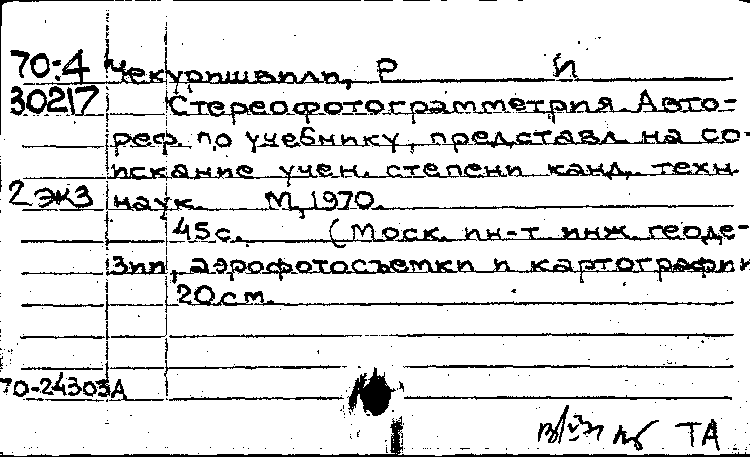 70:4 Чекуришвили, Р И
30217 Стереофотограмметрия. Авто-
реф. по учебнику, представл. на со-
искание учен. степени канд. техн.
2 экз наук. М, 1970.
45 с. (Моск. ин-т инж. геоде-
зии, аэрофотосъемки и картографии
20 см.
70-24303А
ТА